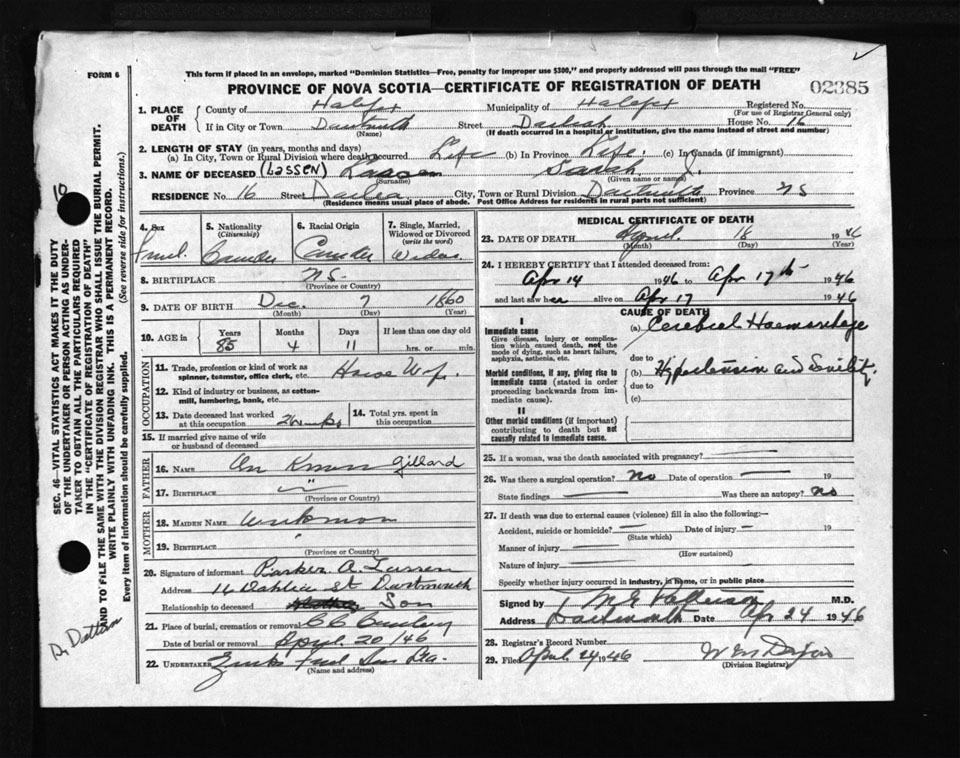 FORM 6
This form if placed in an envelope, marked "Dominion Statistics—Free, penalty for improper use $300," and properly addressed will pass through the mail "FREE"
PROVINCE OF NOVA SCOTIA—CERTIFICATE OF REGISTRATION OF DEATH
02385
1. PLACE OF DEATH County of Halifax Municipality of Halifax Registered No.
(For use of Registrar General only)
If in City or Town Dartmouth Street House No. 16
(Name) (If death occurred in a hospital or institution, give the name instead of street and number)
2. LENGTH OF STAY (in years, months and days)
(a) In City, Town or Rural Division where death occurred Life (b) In Province Life. (c) In Canada (if immigrant)
3. NAME OF DECEASED (LASSEN) Sarah J.
(Surname) (Given name or names)
RESIDENCE No. 16 Street City, Town or Rural Division Dartmouth Province NS
(Residence means usual place of abode. Post Office Address for residents in rural parts not sufficient)
4. Sex
5. Nationality (Citizenship)
6. Racial Origin
7. Single, Married, Widowed or Divorced (write the word)
8. BIRTHPLACE NS.
(Province or Country)
9. DATE OF BIRTH Dec. 7 1860
(Month) (Day) (Year)
10. AGE in Years Months Days If less than one day old
85 4 11 hrs. or min.
OCCUPATION
11. Trade, profession or kind of work as spinner, teamster, office clerk, etc. House Wife.
12. Kind of industry or business, as cotton-mill, lumbering, bank, etc.
13. Date deceased last worked at this occupation
14. Total yrs. spent in this occupation
15. If married give name of wife or husband of deceased
FATHER
16. NAME Gillard
17. BIRTHPLACE "
(Province or Country)
MOTHER
18. MAIDEN NAME
19. BIRTHPLACE
(Province or Country)
20. Signature of informant Parker A. Lassen
Address 16 Dahlia St Dartmouth
Relationship to deceased Son
21. Place of burial, cremation or removal
Date of burial or removal April 20/46
22. UNDERTAKER
(Name and address)
MEDICAL CERTIFICATE OF DEATH
23. DATE OF DEATH April 18 1946
(Month) (Day) (Year)
24. I HEREBY CERTIFY that I attended deceased from:
Apr 14 1946 to Apr 17th 1946
and last saw her alive on Apr 17 1946
CAUSE OF DEATH
I
Immediate cause (a) Cerebral Haemorrhage
Give disease, injury or complication which caused death, not the mode of dying, such as heart failure, asphyxia, asthenia, etc.
due to
Morbid conditions, if any, giving rise to immediate cause (stated in order proceeding backwards from immediate cause).
(b) Hypertension and Senility
due to
(c)
II
Other morbid conditions (if important) contributing to death but not causally related to immediate cause.
25. If a woman, was the death associated with pregnancy?
26. Was there a surgical operation? No Date of operation 19
State findings Was there an autopsy? No
27. If death was due to external causes (violence) fill in also the following:—
Accident, suicide or homicide? Date of injury 19
(State which)
Manner of injury
(How sustained)
Nature of injury
Specify whether injury occurred in industry, in home, or in public place
Signed by M.D.
Address Dartmouth Date Apr 24 1946
28. Registrar's Record Number
29. Filed April 24 1946
(Division Registrar)
SEC. 46—VITAL STATISTICS ACT MAKES IT THE DUTY
OF THE UNDERTAKER OR PERSON ACTING AS UNDER-
TAKER TO OBTAIN ALL THE PARTICULARS REQUIRED
IN THE "CERTIFICATE OF REGISTRATION OF DEATH"
AND TO FILE THE SAME WITH THE DIVISION REGISTRAR WHO SHALL ISSUE THE BURIAL PERMIT.
WRITE PLAINLY WITH UNFADING INK. THIS IS A PERMANENT RECORD.
Every item of information should be carefully supplied. (See reverse side for instructions.)